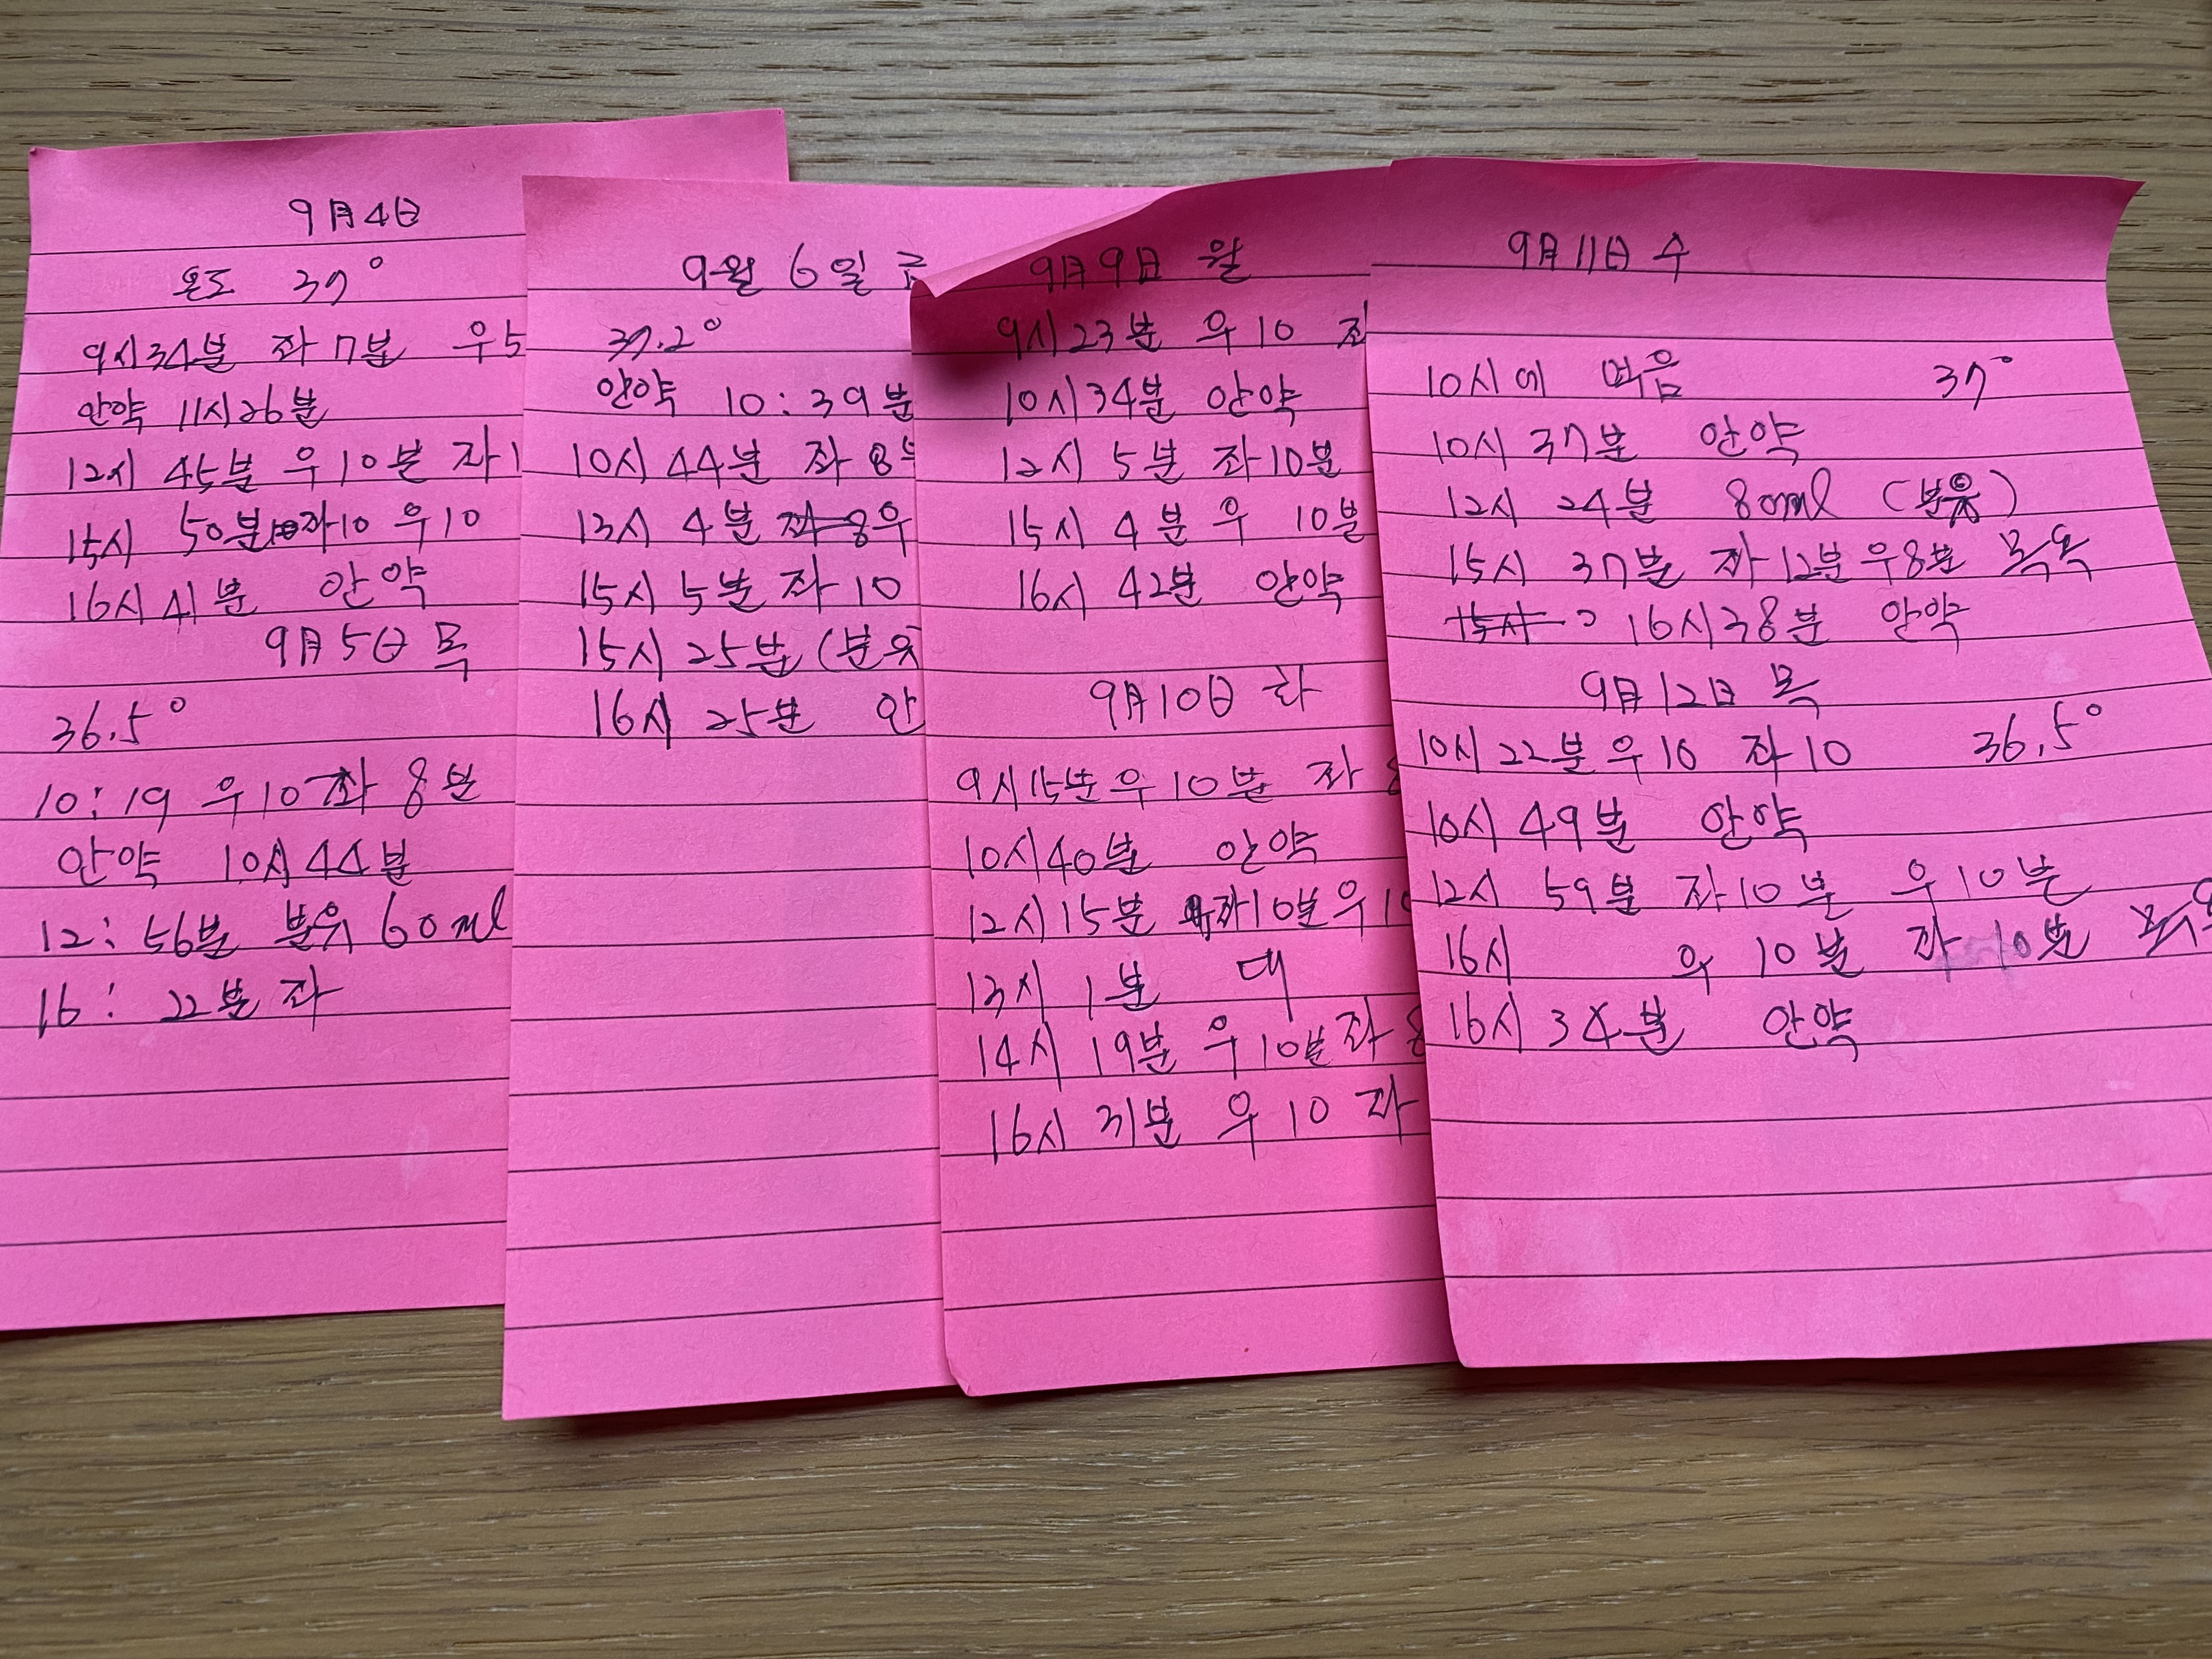 9月4日
온도 37°
9시34분 좌7분 우5
안약 11시26분
12시 45분 우10분 좌1
15시 50분 좌10 우10
16시 41분 안약
9月5日 목
36.5°
10:19 우10 좌 8분
안약 10시44분
12:56분 분유 60ml
16:22분 좌
9월 6일
37.2°
안약 10:39분
10시 44분 좌 8
13시 4분 좌 8우
15시 5분 좌 10
15시 25분 (분유
16시 25분 안
9月9日 월
9시23분 우10 좌
10시34분 안약
12시 5분 좌10분
15시 4분 우 10분
16시 42분 안약
9月10日 화
9시15분우10분 좌
10시40분 안약
12시15분 좌10분우10
13시 1분 대
14시 19분 우10분좌
16시 31분 우10 좌
9月11日 수
10시에 먹음 37°
10시 37분 안약
12시 24분 80ml (분유)
15시 37분 좌12분우8분 목욕
16시38분 안약
9月12日 목
10시22분우10 좌10 36.5°
10시 49분 안약
12시 59분 좌10분 우10분
16시 우 10분 좌 10분
16시 34분 안약